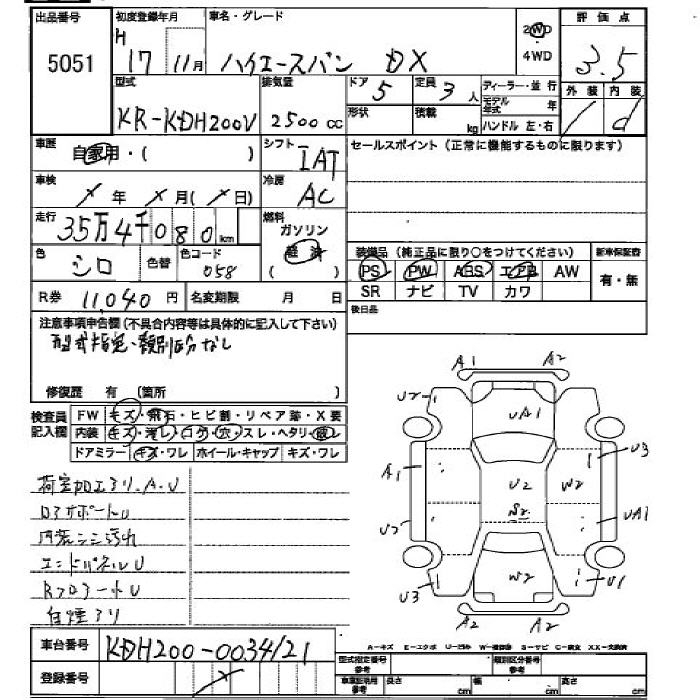 出品番号 初度登録年月 車名・グレード 2WD 評価点
5051 H 17 11月 ハイエースバン DX 4WD 3.5
型式 排気量 ドア 5 定員 3人 ディーラー・並行 外装 内装
モデル年式 年
KR-KDH200V 2500cc 形状 積載 kg ハンドル 左・右 d
車歴 自家用・( ) シフト IAT セールスポイント(正常に機能するものに限ります)
車検 × 年 × 月(× 日) 冷房 AC
走行 35万4千080km 燃料 ガソリン
色 シロ 色替 色コード 058 (軽油) 装備品(純正品に限り○をつけてください) 新車保証書
PS PW ABS エアB AW 有・無
R券 11,040円 名変期限 月 日 SR ナビ TV カワ
注意事項申告欄(不具合内容等は具体的に記入して下さい) 後日品
型式指定・類別区分なし
修復歴 有(箇所 )
検査員 FW キズ・飛石・ヒビ割・リペア跡・X要
記入欄 内装 キズ・汚レ・コゲ・穴・スレ・ヘタリ・
ドアミラー キズ・ワレ ホイール・キャップ キズ・ワレ
荷室加工アリ.A.U
U
内装シミ汚れ
エンドパネルU
RフロアートU
A1 A2
U2 UA1
A1 U2 W2 U3
U2 S2 UA1
U3 W2 U1
A2 A2
A-キズ E-エクボ U-凹み W-補修跡 S-サビ C-腐食 XX-交換済
車台番号 KDH200-0034121
登録番号
型式指定番号 参考 類別区分番号 参考
車輌証明書 参考 長さ cm 幅 cm 高さ cm